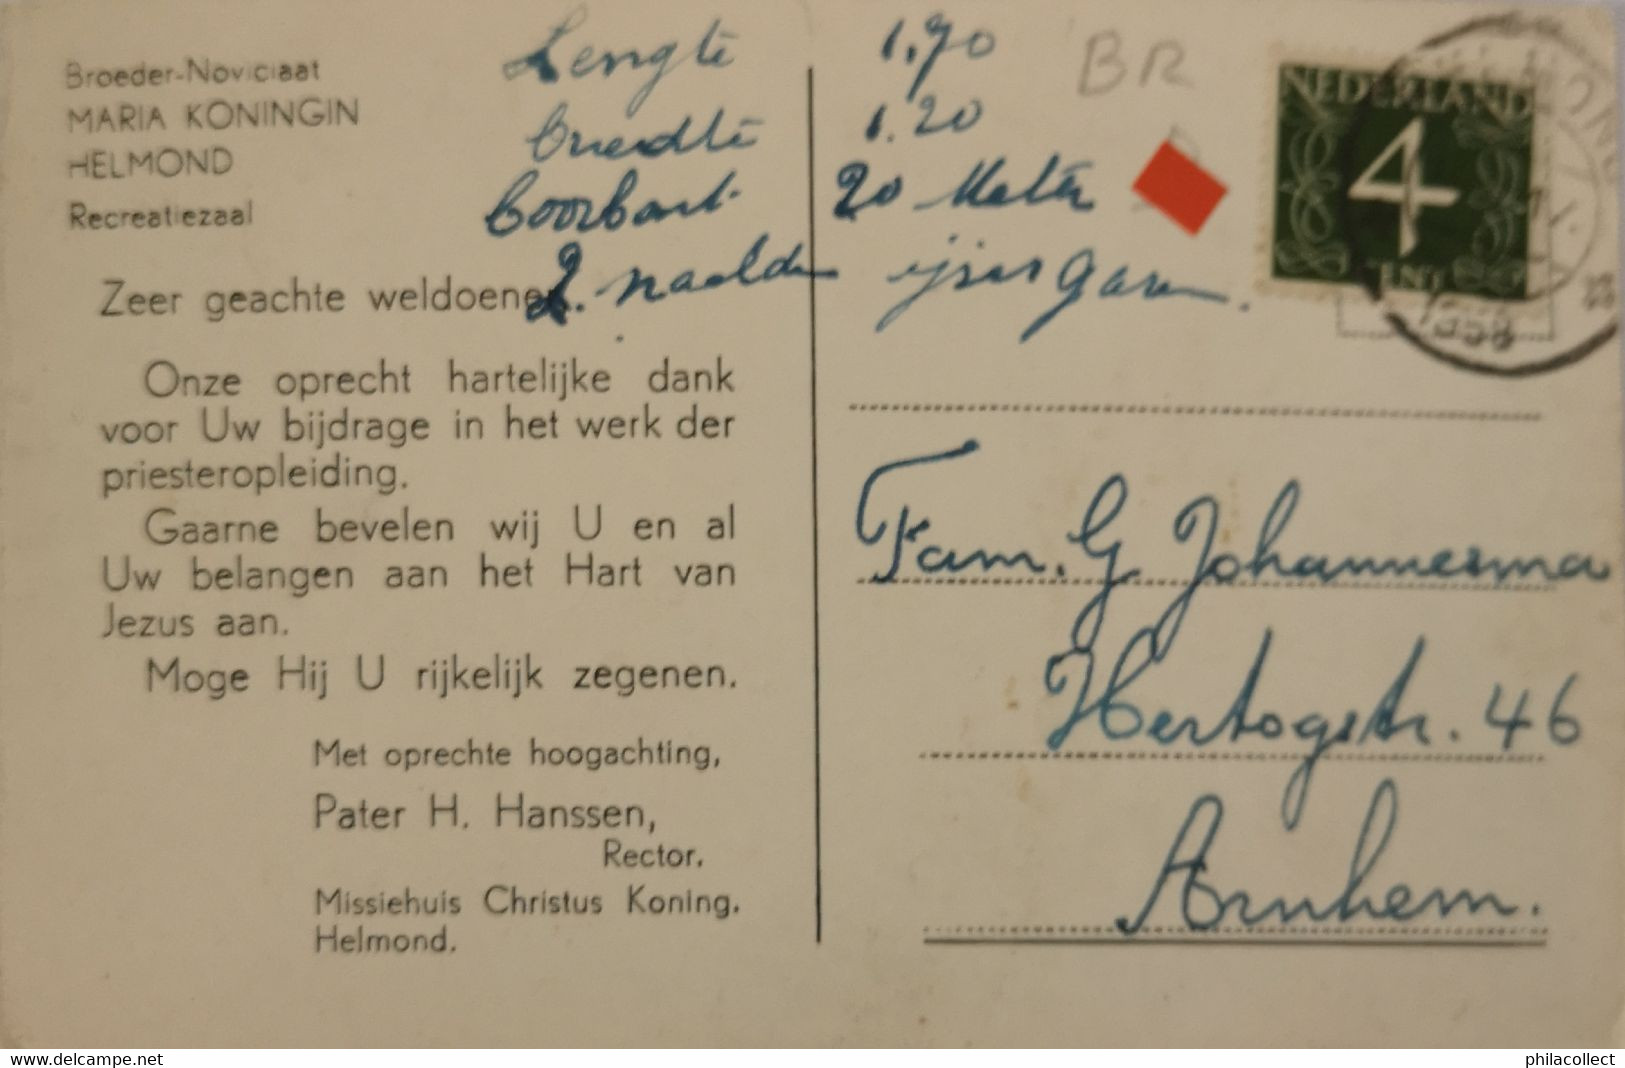 Broeder-Noviciaat
MARIA KONINGIN
HELMOND
Recreatiezaal
Lengte 1.70
Breedte 1.20
20 Meter
2 naalden ijsergaren.
BR
NEDERLAND
4
CENT
1958
Zeer geachte weldoener.
Onze oprecht hartelijke dank
voor Uw bijdrage in het werk der
priesteropleiding.
Gaarne bevelen wij U en al
Uw belangen aan het Hart van
Jezus aan.
Moge Hij U rijkelijk zegenen.
Met oprechte hoogachting,
Pater H. Hanssen,
Rector.
Missiehuis Christus Koning.
Helmond.
Fam. G. Johannesma
Hertogstr. 46
Arnhem.
www.delcampe.net
philacollect